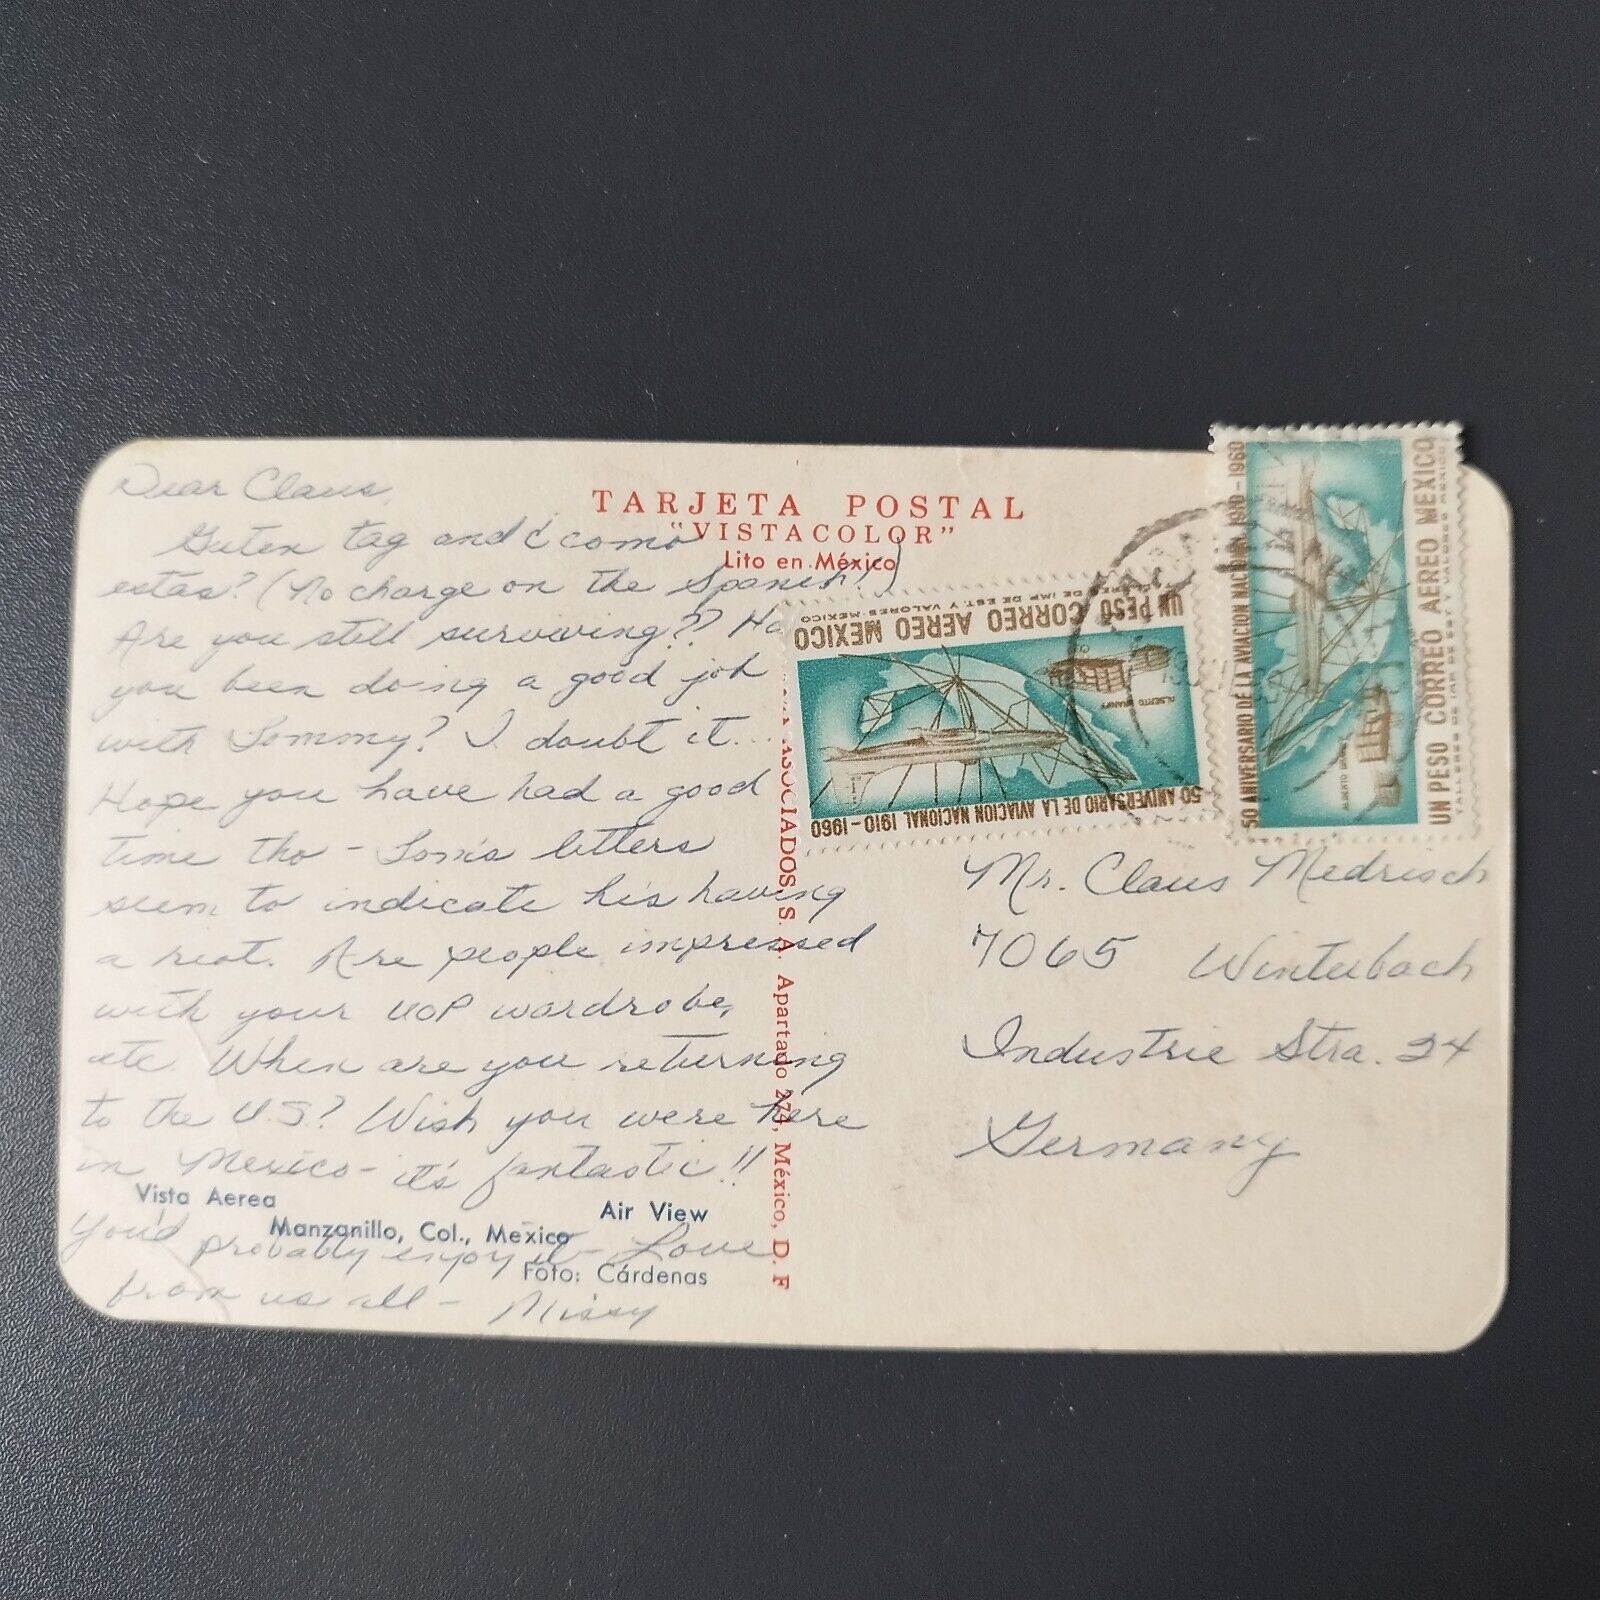 Dear Claus,
Guten tag and ¿como
estas? (No charge on the Spanish!)
Are you still surviving?? Ha
you been doing a good job
with Tommy? I doubt it...
Hope you have had a good
time tho - Tom's letters
seem to indicate he's having
a riot. Are people impressed
with your UOP wardrobe,
etc. When are you returning
to the U.S? Wish you were here
in Mexico - it's fantastic!!
You'd probably enjoy it - Love
from us all - Missy
Vista Aerea
Air View
Manzanillo, Col., Mexico
Foto: Cárdenas
TARJETA POSTAL
"VISTACOLOR"
Lito en México
ASOCIADOS, S. A. Apartado 274, México, D. F
UN PESO CORREO AEREO MEXICO
TALLERES DE IMP. DE EST. Y VALORES-MEXICO
ALBERTO BRANIFF
50 ANIVERSARIO DE LA AVIACION NACIONAL 1910-1960
50 ANIVERSARIO DE LA AVIACION NACIONAL 1910-1960
ALBERTO BRANIFF
UN PESO CORREO AEREO MEXICO
TALLERES DE IMP. DE EST. Y VALORES-MEXICO
Mr. Claus Medrisch
7065 Winterbach
Industrie Stra. 24
Germany